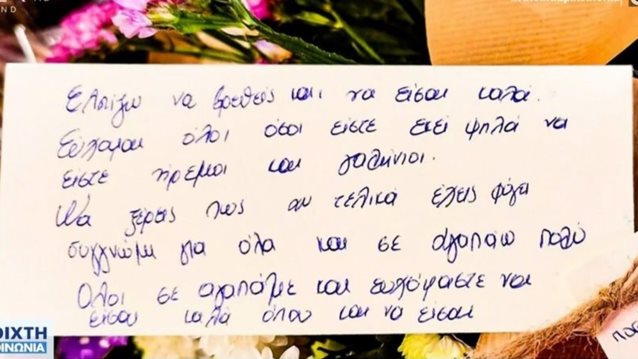 Ελπίζω να βρεθείς και να είσαι καλά.
Εύχομαι όλοι όσοι είστε εκεί ψηλά να
είστε ήρεμοι και γαλήνιοι.
Να ξέρεις πως αν τελικά έχεις φύγει
συγγνώμη για όλα και σε αγαπάω πολύ
Όλοι σε αγαπάμε και ευχόμαστε να
είσαι καλά όπου και να είσαι
ΟΙΧΤΗ
ΟΙΝΩΝΙΑ